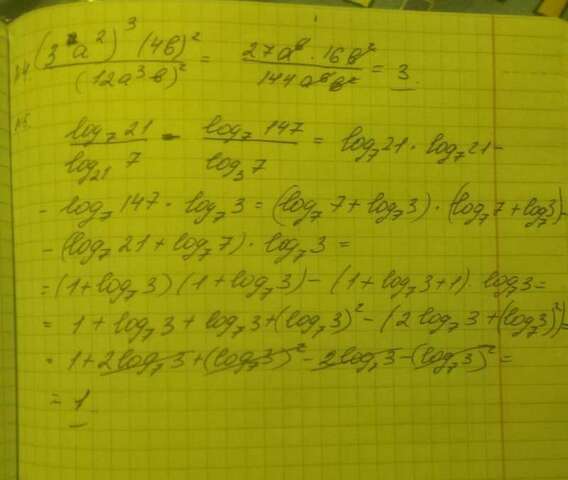 №4. (3a²)³(4b)² / (12a³b)² = 27a⁶ · 16b² / 144a⁶b² = 3.
№5.
log₇21 / log₂₁7 - log₇147 / log₃7 = log₇21 · log₇21 -
- log₇147 · log₇3 = (log₇7 + log₇3) · (log₇7 + log₇3) -
- (log₇21 + log₇7) · log₇3 =
= (1 + log₇3)(1 + log₇3) - (1 + log₇3 + 1) · log₇3 =
= 1 + log₇3 + log₇3 + (log₇3)² - (2log₇3 + (log₇3)²) =
= 1 + 2log₇3 + (log₇3)² - 2log₇3 - (log₇3)² =
= 1